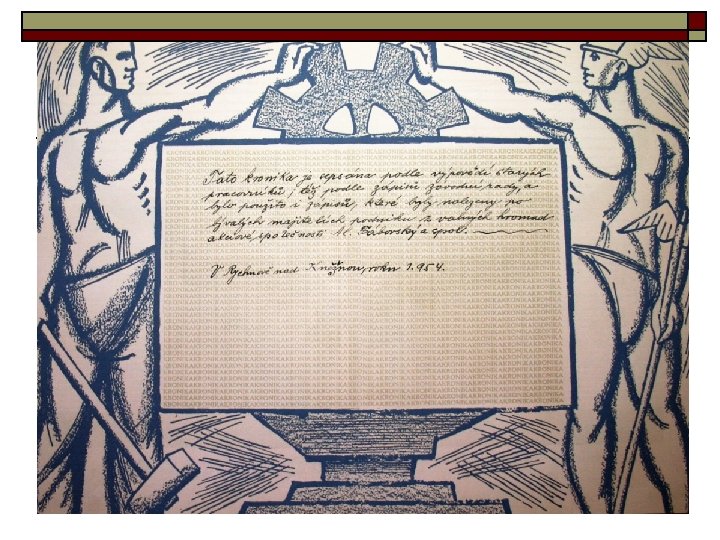 Tato kronika je sepsána podle výpovědí starých
pracovníků, též podle zápisů závodní rady, a
bylo použito i zápisů, které byly nalezeny po
bývalých majitelích podniku z valných hromad
akciové společnosti M. Táborský a spol.
V Rychnově nad Kněžnou, roku 1954.